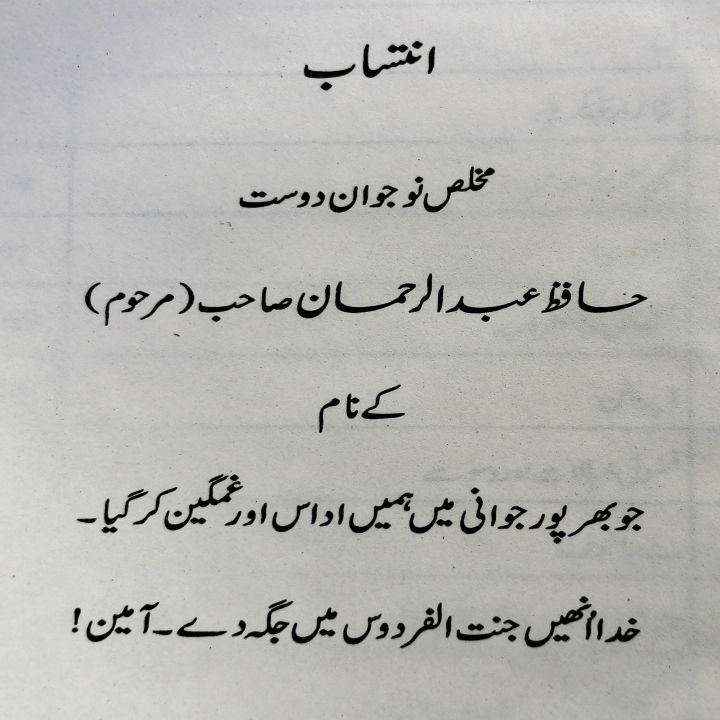 انتساب
مخلص نوجوان دوست
حافظ عبدالرحمان صاحب (مرحوم)
کے نام
جو بھرپور جوانی میں ہمیں اداس اور غمگین کر گیا۔
خدا اُنھیں جنت الفردوس میں جگہ دے۔ آمین!